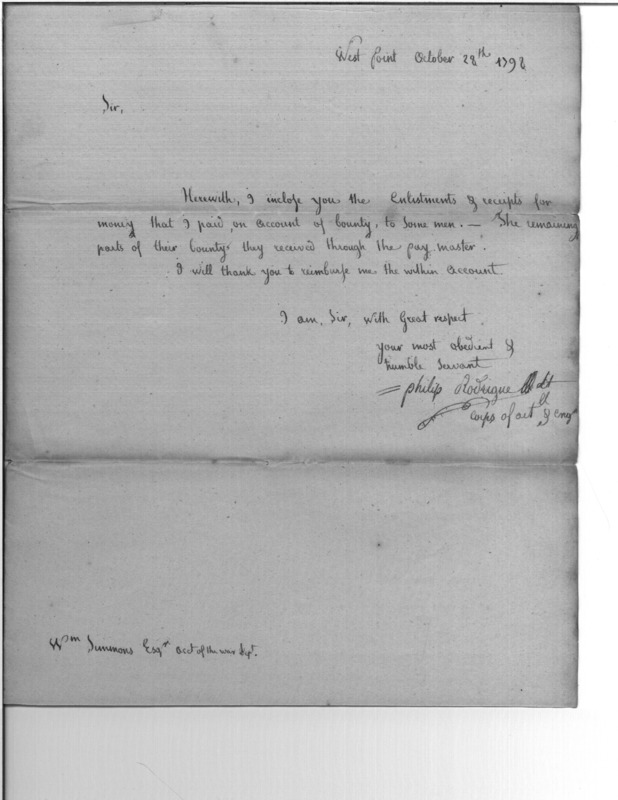 West Point October 28th 1798
Sir,
Herewith, I inclose you the Enlistments & receipts for
money that I paid, on account of bounty, to some men. — The remaining
parts of their bounty they received through the pay master.
I will thank you to reimburse me the within account.
I am, Sir, with Great respect.
your most obedient &
humble Servant
Philip Rodrigue Lt
Corps of art & eng
Wm Simmons Esqr acct of the war dept.